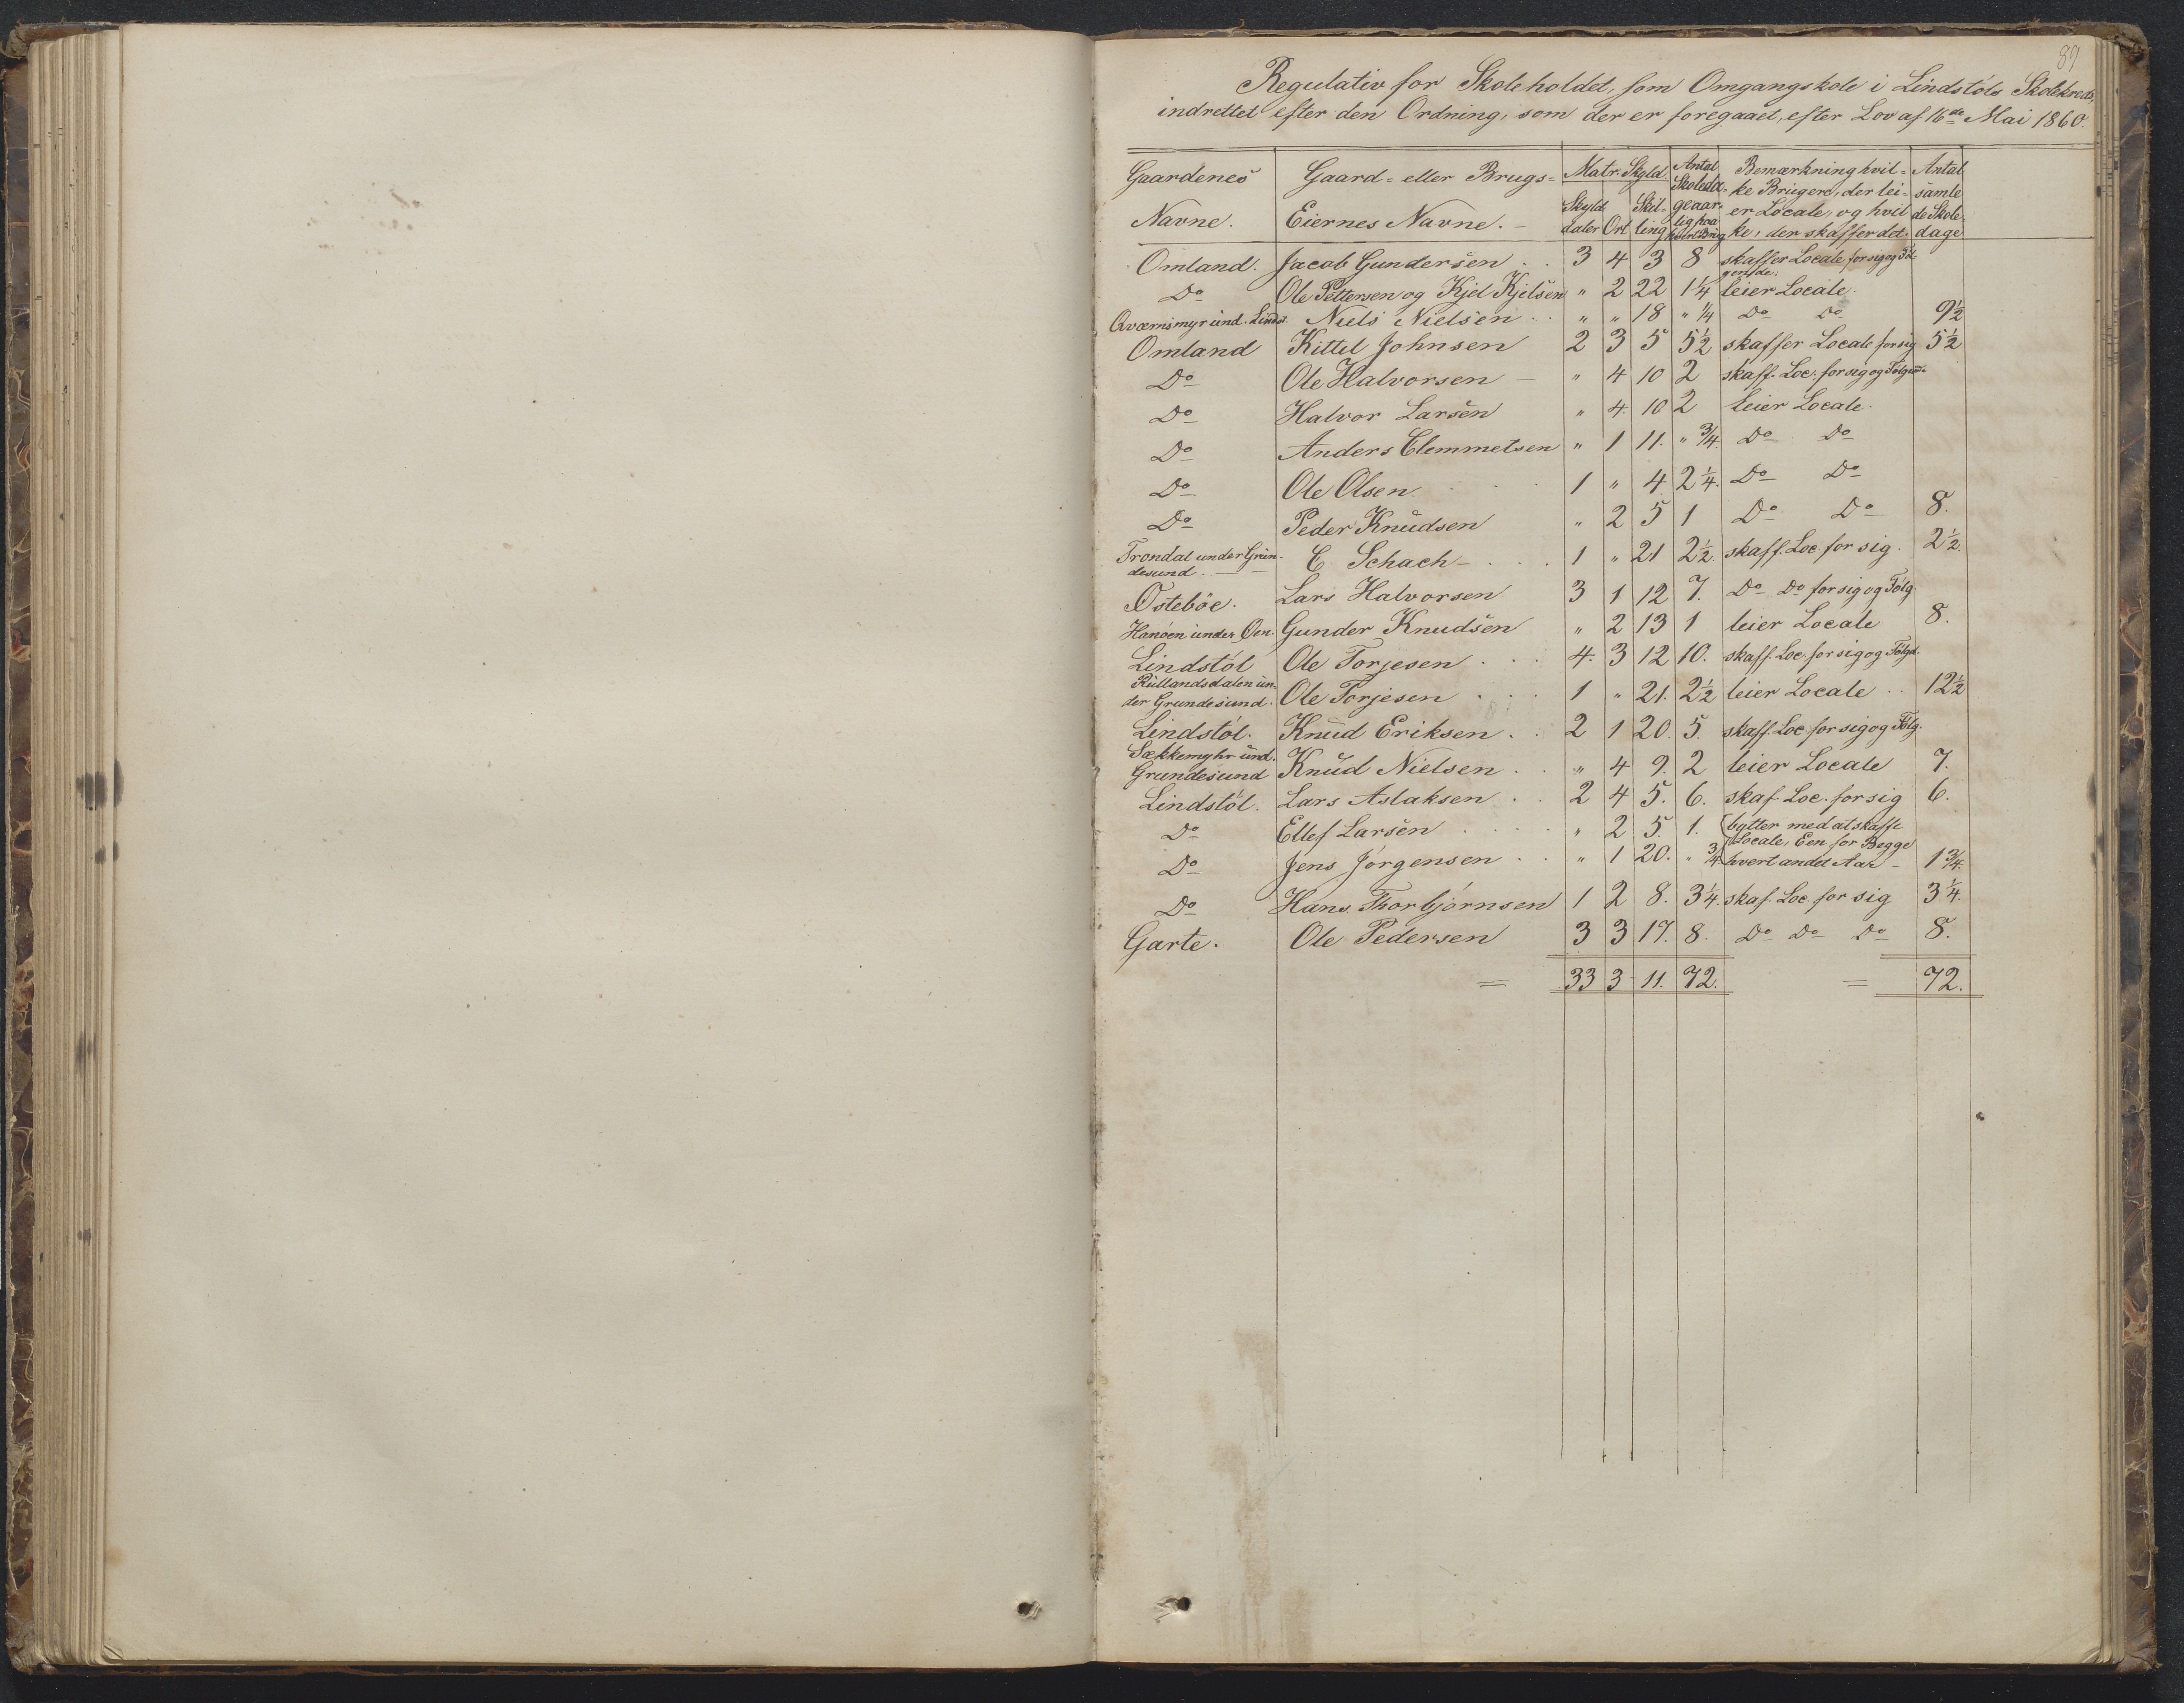 89
Regulativ for Skoleholdet, som Omgangskole i Lindstöls Skolekreds,
indrettet efter den Ordning, som der er foregaaet, efter Lov af 16de Mai 1860.
Gaardenes Navne. | Gaard- eller Brugs- Eiernes Navne. | Matr. Skyld. Skylddaler Ort Skilling | Antal Skoledage aarlig hos hvert Brug | Bemærkning hvilke Brugere, der leier Locale, og hvilke, der skaffer det. | Antal samlede Skoledage
Omland. Jacob Gundersen . . 3 4 3 8 skaffer Locale for sig og Fölgende.
Do Ole Pettersen og Kjel Kjelsen " 2 22 1¼ leier Locale.
Qværnsmyr und. Linds. Niels Nielsen . . " " 18 " ¼ Do Do 9½
Omland Kittel Johnsen 2 3 5 5½ skaffer Locale for sig 5½
Do Ole Halvorsen — " 4 10 2 skaff. Loc. for sig og Fölgende
Do Halvor Larsen " 4. 10 2 leier Locale.
Do Anders Clemmetsen " 1 11. " ¾. Do Do
Do Ole Olsen . . . 1 " 4 2¼. Do Do
Do Peder Knudsen " 2 5 1 Do Do 8.
Trondal under Grundesund. C. Schach - . . . 1 " 21 2½. skaff. Loc for sig. 2½.
Östeböe. Lars Halvorsen 3 1 12 7. Do Do for sig og Fölg.
Hanöen under Öen. Gunder Knudsen " 2 13 1 leier Locale 8.
Lindstöl Ole Torjesen . . . 4. 3 12 10. skaff. Loc. for sig og Fölgd.
Rullandsdalen under Grundesund. Ole Torjesen . . . 1 " 21. 2½ leier Locale . . 12½
Lindstöl. Knud Eriksen . . 2 1 20. 5. skaff. Loc. for sig og Fölg.
Sækkemyhr und. Grundesund Knud Nielsen . . " 4 9. 2 leier Locale 7.
Lindstöl. Lars Aslaksen . . 2 4 5. 6. skaf. Loc. for sig 6.
Do Ellef Larsen . . . . " 2 5. 1. bytter med at skaffe
Do Jens Jörgensen . . " 1 20. " ¾ Locale, Een for Begge hvert andet Aar - 1¾.
Do Hans Thorbjörnsen 1 2 8. 3¼. skaf. Loc. for sig 3¼.
Garte. Ole Pedersen 3 3 17. 8. Do Do Do 8.
= 33 3 11. 72. = 72.